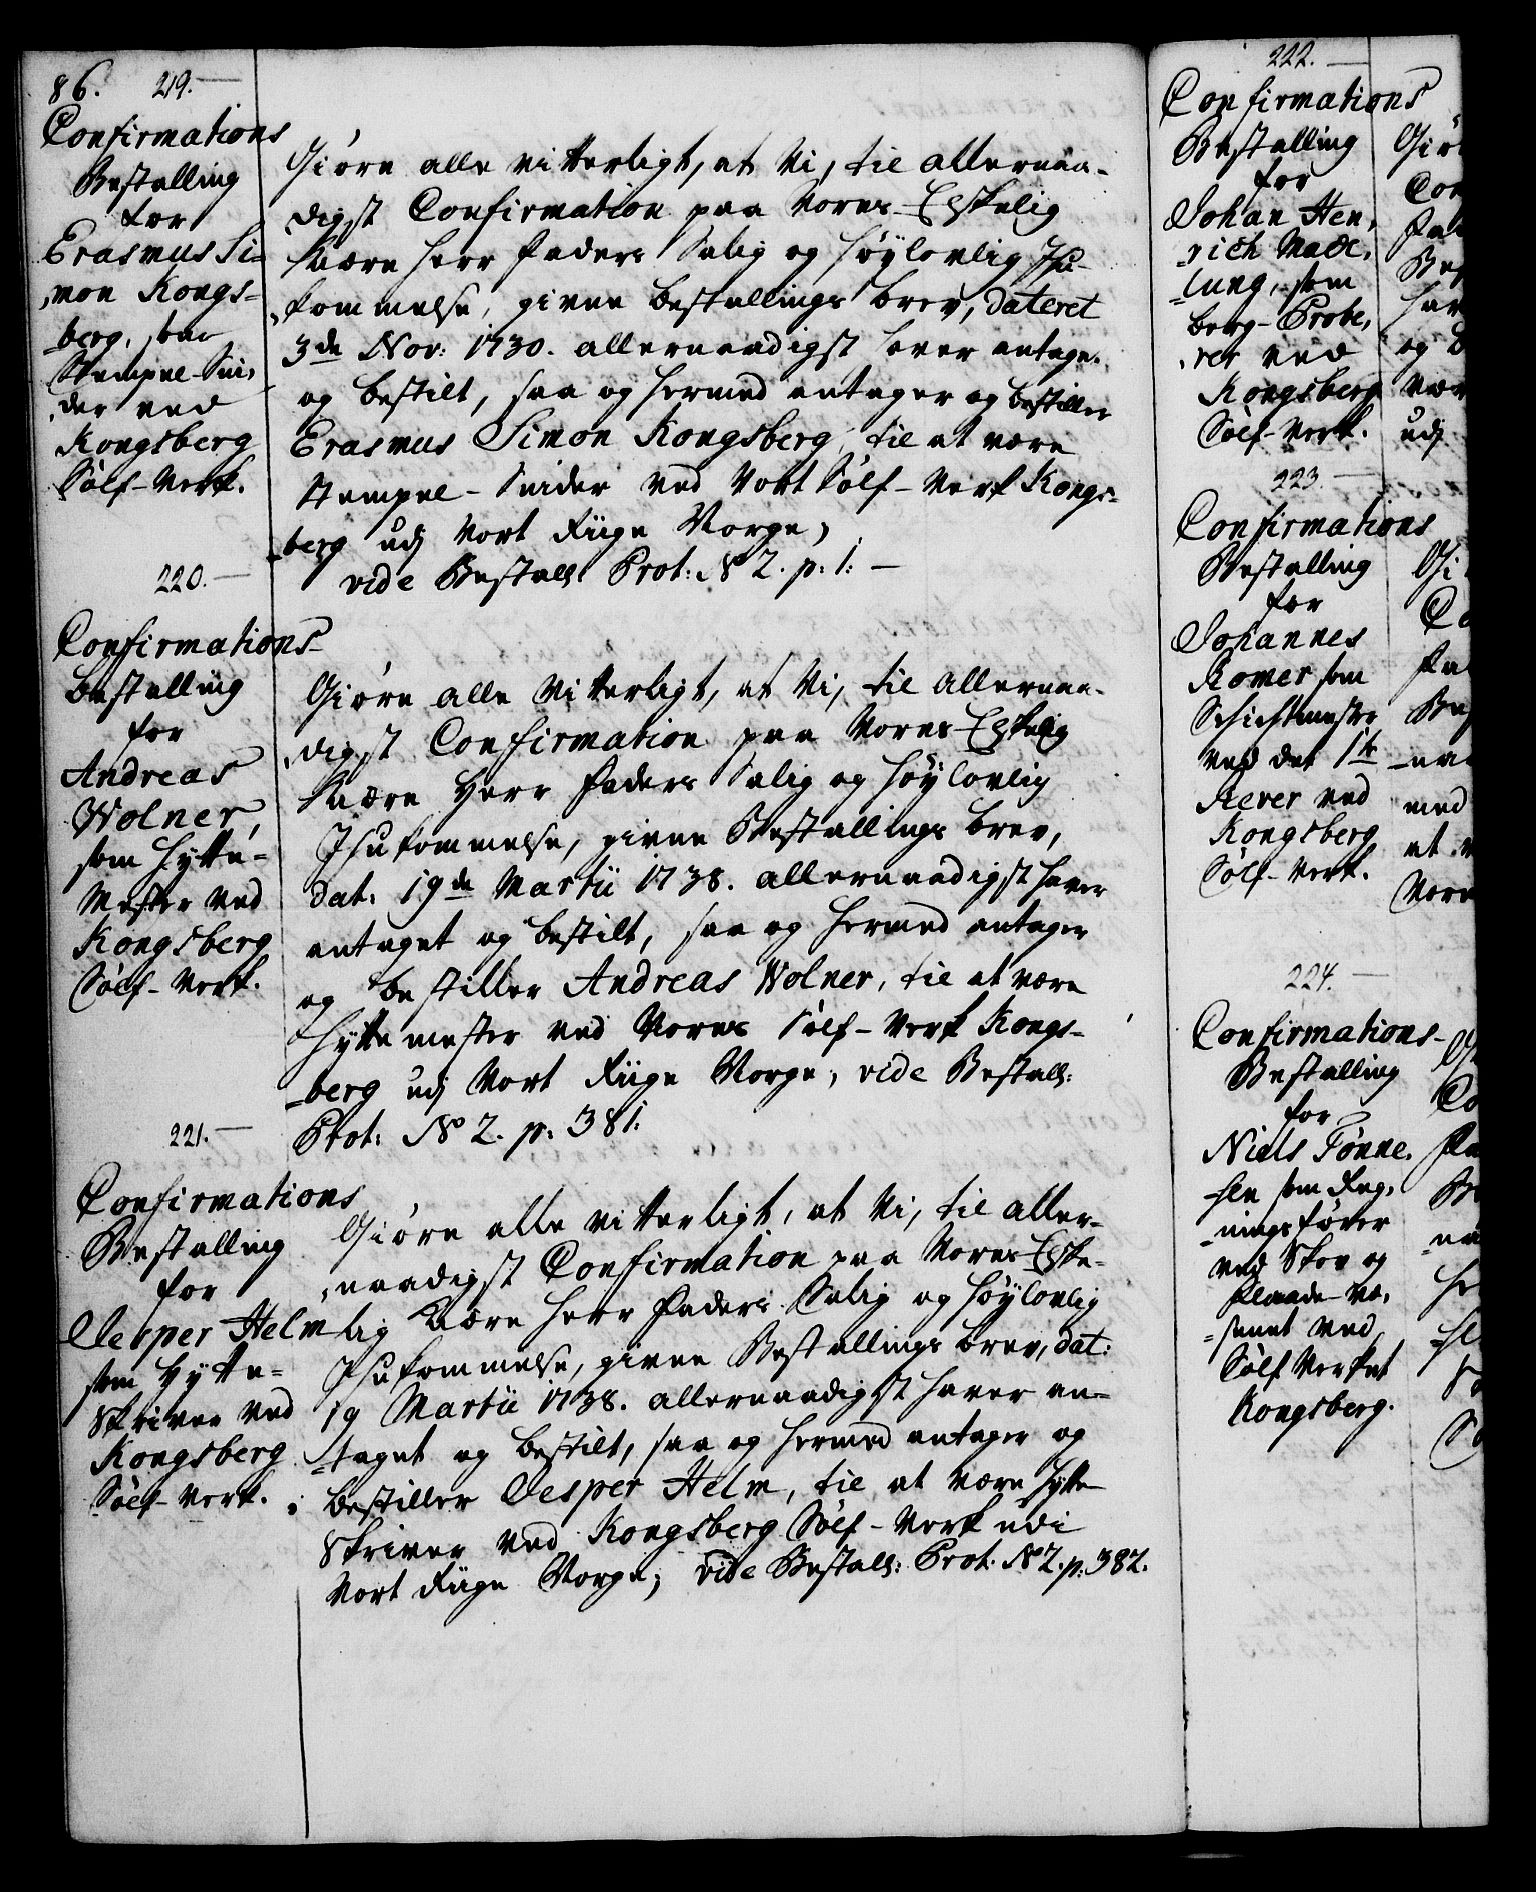 86. 219.
Confirmations
Bestalling
for
Erasmus Si-
mon Kongs-
berg, som
Stempel-Sni-
der ved
Kongsberg
Sølf-Verk.
Giøre alle vitterligt, at Vi, til allernaa-
digst Confirmation paa Vores Elskelig
Kiære Herr Faders Salig og Høylovlig Ihu-
kommelse, givne Bestallings brev, dateret
3de Nov: 1730. allernaadigst haver antaget
og bestilt, saa og hermed antager og bestiller
Erasmus Simon Kongsberg, til at være
Stempel-Snider ved Vort Sølf-Verk Kongs-
berg udj Vort Riige Norge;
vide Bestall: Prot: No 2. p: 1:
220.
Confirmations
Bestalling
for
Andreas
Wolner,
som Hytte-
Mester ved
Kongsberg
Sølf-Verk.
Giøre alle Vitterligt, at Vi, til Allernaa-
digst Confirmation paa Vores Elskelig
Kiære Herr Faders Salig og Høylovlig
Ihukommelse, givne Bestallings brev,
dat: 19de Martii 1738. allernaadigst haver
antaget og bestilt, saa og hermed antager
og bestiller Andreas Wolner, til at være
Hyttemester ved Vores Sølf-Verk Kongs-
berg udj Vort Riige Norge; vide Bestall:
Prot: No 2. p: 381.
221.
Confirmations
Bestalling
for
Jesper Helm
som Hytte-
Skriver ved
Kongsberg
Sølf-Verk.
Giøre alle vitterligt, at Vi, til aller-
naadigst Confirmation paa Vores Elske-
lig Kiære Herr Faders Salig og Høylovlig
Ihukommelse, givne Bestallings brev, dat:
19 Martii 1738. allernaadigst haver an-
taget og bestilt, saa og hermed antager og
bestiller Jesper Helm, til at være Hytte-
Skriver ved Kongsberg Sølf-Verk udi
Vort Riige Norge; vide Bestall: Prot: No 2. p: 382.
222.
Confirmations
Bestalling
for
Johan Hen-
rich Made-
lung, som
berg-Probe-
rer ved
Kongsberg
Sølf-Verk.
223.
Confirmations
Bestalling
for
Johannes
Romer som
Schichtmester
ved det 1te
Rever ved
Kongsberg
Sølf-Verk.
224.
Confirmations-
Bestalling
for
Niels Tønne-
sen som Reg-
ningsfører
ved Skov og
Flaade-Væ-
senet ved
Sølf Verket
Kongsberg.